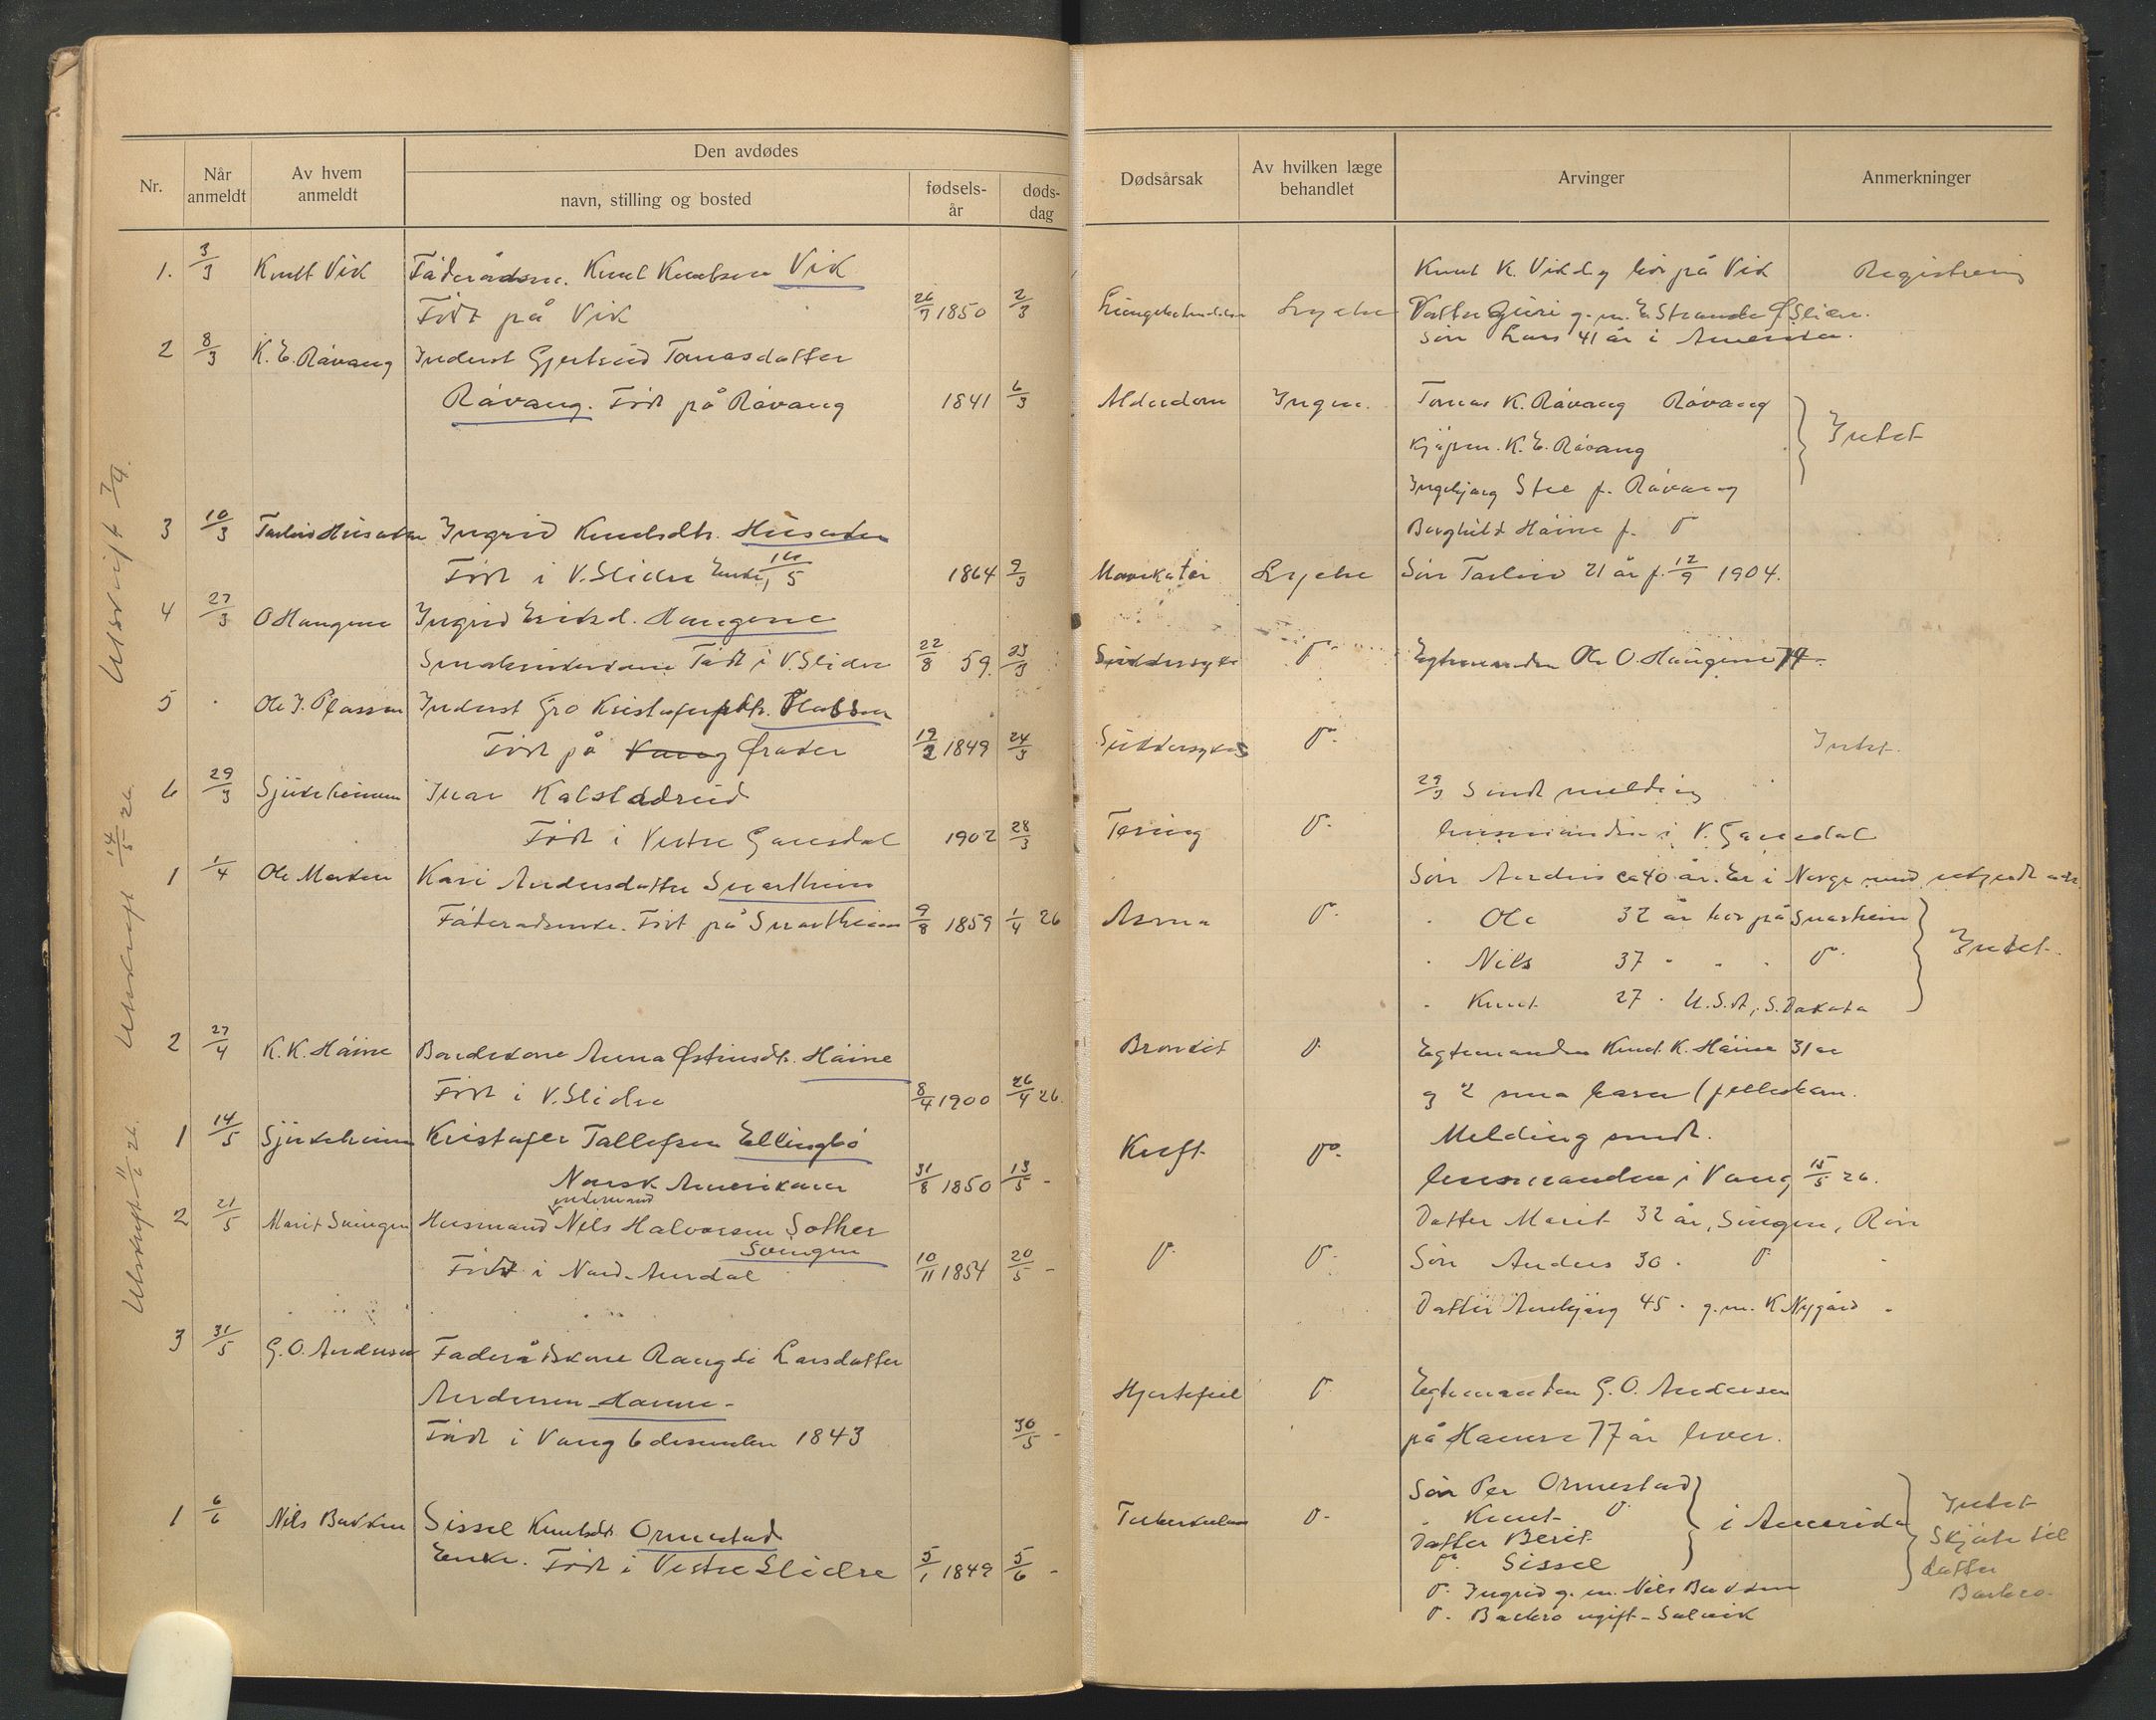 Nr.
Når anmeldt
Av hvem anmeldt
Den avdødes
navn, stilling og bosted
fødsels-år
døds-dag
Dødsårsak
Av hvilken læge behandlet
Arvinger
Anmerkninger
1. 3/3 Knut Vik Føderådsm. Knut Knutsen Vik
Født på Vik 1850 2/3
Lycke
Knut K. Vik bor på Vik
Datter Guri g. m. E. Strande Ø Slidre.
Søn Lars 41 år i Amerika.
Registrering
2 8/3 K. E. Råvang Inderst Gjertrud Tomasdatter
Råvang. Født på Råvang 1841 6/3
Alderdom Ingen.
Tomas K. Råvang Råvang
Kjøpm. K. E. Råvang
Ingebjørg Stee f. Råvang
Borghild Håine f. "
Intet
3 10/3 Ingrid Knutsdtr. Husaker
Født i V. Slidre Enke, 1864 9/3
Lycke
Søn 21 år f. 12/9 1904.
Utskrift 7/4.
4 27/3 O Haugene Ingrid Eriksd. Haugene
Født i V. Slidre 22/8 59. 23/3
Sukkersyke "
Egtemanden Ole O. Haugene 74
5 Ole J. Plassen Inderst Gro Kristofersdtr. Plassen
Født på Øraker 1849 24/3
Sukkersyke "
Intet.
6 29/3 Sjukeheimen Ivar Kalstadrud
Født i Vestre Gausdal 1902 28/3
Tæring "
29/3 Sendt melding
lensmanden i V. Gausdal
Utskrift 14/5 26.
1 1/4 Kari Andersdatter Svartheim
Føderådsenke. Født på Svartheim 9/8 1859 1/4 26
Asma "
Søn Anders ca 40 år. Er i Norge med
" Ole 32 år bor på Svarheim
" Nils 37 " " " "
" Knut 27 " U.S.A, S. Dakota
Intet.
2 27/4 K. K. Håine Bondekone Anna Østensdtr. Håine
Født i V. Slidre 8/4 1900 26/4 26.
Bronkit "
Egtemanden Knut K. Håine 31 år
og 2 små barn (fellesbarn.
Utskrift 11/6 26.
1 14/5 Sjukeheimen Kristofer Tollefsen Ellingbø
Norsk Amerikaner 31/8 1850 13/5 -
Kreft "
Melding sendt.
lensmanden i Vang 15/5 26.
2 21/5 Marit Svingen Husmand Nils Halvorsen Solher
enkemand
Svingen
Født i Nord-Aurdal 10/11 1854 20/5 -
" "
Datter Marit 32 år, Svingen, Røn
Søn Anders 30 " "
Datter 45 " g. m. K Nygård "
3 31/5 G. O. Andersen Føderådskone Rangdi Larsdatter
Andersen Hamre -
Født i Vang 6 desember 1843 30/5 -
Hjertefeil "
Egtemanden G. O. Andersen
på Hamre 77 år lever.
1 6/6 Nils Bakken Sissel Knutsdtr. Ormestad
Enke. Født i Vestre Slidre 5/1 1849 5/6 -
"
Søn Per Ormestad
" Knut "
Datter Berit
" Sissel
i Amerika
" Ingrid g. m. Nils Bakken
" Barbro ugift - Solvik
Intet
Skjøte til
datter
Barbro.